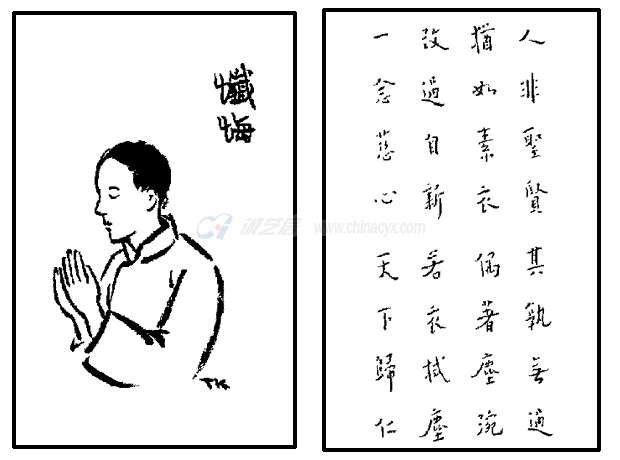 懺悔
TK
人非聖賢其孰無過
猶如素衣偶著塵涴
改過自新若衣拭塵
一念慈心天下歸仁
诚艺信 www.chinacyx.com